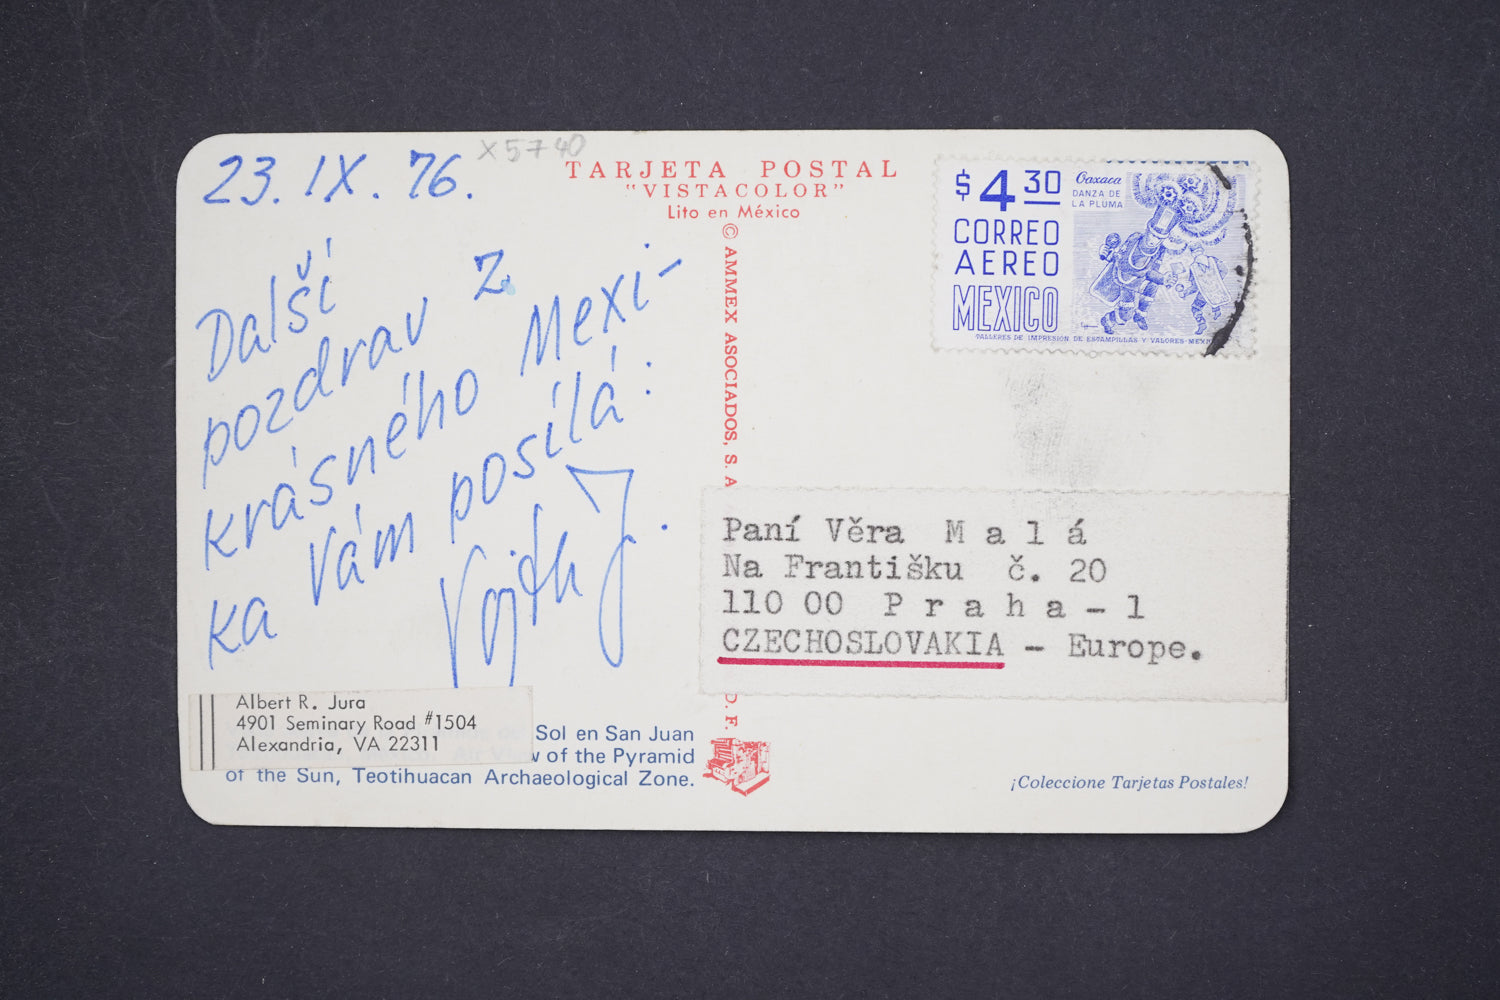 23. IX. 76.
X5740
TARJETA POSTAL
"VISTACOLOR"
Lito en México
© AMMEX ASOCIADOS, S. A
D. F.
$4 30
CORREO
AEREO
MEXICO
Oaxaca
DANZA DE
LA PLUMA
TALLERES DE IMPRESION DE ESTAMPILLAS Y VALORES-MEX
Další
pozdrav z
krásného Mexi-
ka Vám posílá:
Vojtěch J.
Paní Věra M a l á
Na Františku č. 20
110 00 P r a h a - 1
CZECHOSLOVAKIA - Europe.
Albert R. Jura
4901 Seminary Road #1504
Alexandria, VA 22311
Sol en San Juan
w of the Pyramid
of the Sun, Teotihuacan Archaeological Zone.
¡Coleccione Tarjetas Postales!